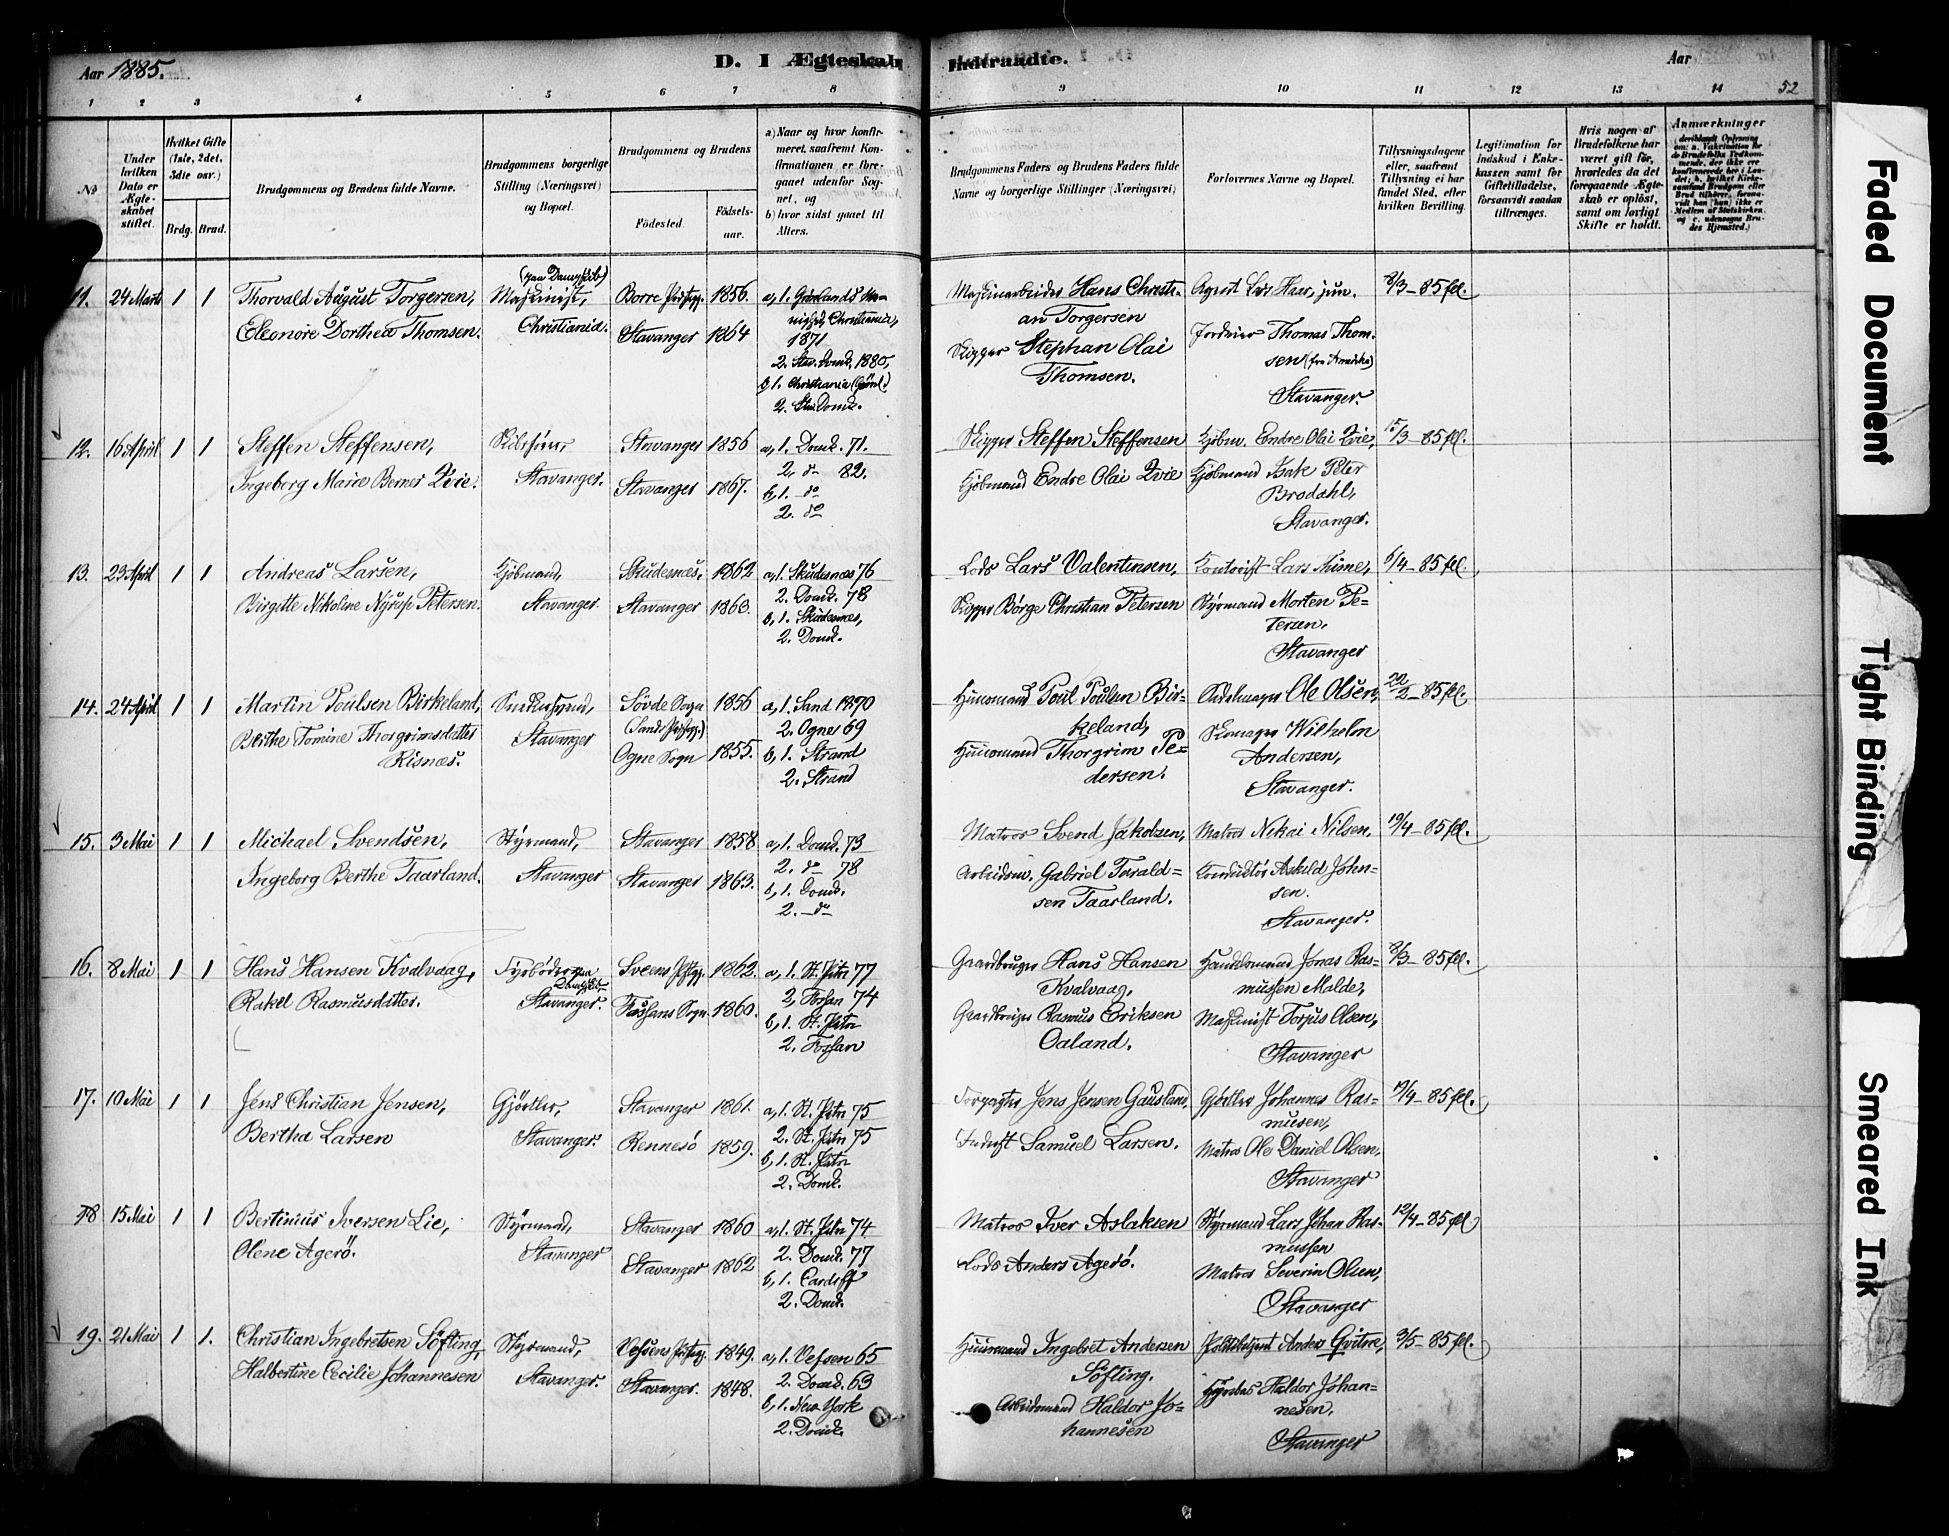 Aar 1885.
D. I Ægteskab
Indtraadte.
Aar
52
1 2 3 4 5 6 7 8 9 10 11 12 13 14
No
Under hvilken Dato er Ægteskabet stiftet.
Hvilket Gifte (1ste, 2det, 3die osv.)
Brdg. Brud.
Brudgommens og Brudens fulde Navne.
Brudgommens borgerlige Stilling (Næringsvei) og Bopæl.
Brudgommens og Brudens
Födested.
Födselsaar.
a) Naar og hvor konfirmeret, saafremt Konfirmationen er foregaaet udenfor Sognet, og
b) hvor sidst gaaet til Alters.
Brudgommens Faders og Brudens Faders fulde Navne og borgerlige Stillinger (Næringsvei)
Forlovernes Navne og Bopæl.
Tillysningsdagene eller, saafremt Tillysning ei har fundet Sted, efter hvilken Bevilling.
Legitimation for Indskud i Enkekassen samt for Giftetilladelse, forsaavidt saadan tiltrænges.
Hvis nogen af Brudefolkene har været gift för, hvorledes da det foregaaende Ægteskab er oplöst, samt om lovligt Skifte er holdt.
Anmærkninger
11. 24 Marts 1 1
Thorvald August Torgersen,
Eleonore Dorthea Thomsen.
(paa Dampskib)
Maskinist,
Christiania.
Borre Præstegj. 1856.
Stavanger 1864
a, 1. Grønlands Menighed, Christiania, 1871
2. Stav. Domk. 1880,
b, 1. Christiania (Grönl.)
2. Stav. Domk.
Maskinarbeider Hans Christian Torgersen
Skipper Stephan Olai Thomsen.
Agent Lars Haar, jun.
Jordeier Thomas Thomsen (fra Amerika)
Stavanger.
8/3 - 85 fl.
12. 16 April 1 1
Steffen Steffensen,
Ingeborg Marie Berner Qvie.
Skibsfører,
Stavanger.
Stavanger 1856
Stavanger 1867.
a, 1. Domk. 71.
2. do 82.
b, 1. do
2. do
Skipper Steffen Steffensen
Kjøbmand Endre Olai Qvie
Kjøbm. Endre Olai Qvie,
Kjøbmand Isak Peter Brodahl,
Stavanger.
15/3 - 85 fl.
13. 23 April 1 1
Andreas Larsen,
Birgitte Nikoline Nyrup Petersen.
Kjöbmand,
Stavanger.
Skudesnæs, 1862
Stavanger 1863.
a, 1. Skudesnæs 76
2. Domk. 78
b, 1. Skudesnæs,
2. Domk.
Lods Lars Valentinsen,
Skipper Børge Christian Petersen
Kontorist Lars Thime,
Styrmand Morten Petersen,
Stavanger
6/4 - 85 fl.
14. 24 April 1 1
Martin Poulsen Birkeland,
Berthe Tomine Thorgrimsdatter Risnæs.
Snedkersvend,
Stavanger
Sövde Sogn (Sands Præstegj.) 1856
Ogne Sogn 1855.
a, 1. Sand 1870
2. Ogne 69
b, 1. Strand
2. Strand
Huusmand Poul Poulsen Birkeland,
Huusmand Thorgrim Pedersen.
Sadelmager Ole Olsen,
Skomager Wilhelm Andersen,
Stavanger.
22/2 - 85 fl.
15. 3 Mai 1 1
Michael Svendsen,
Ingeborg Berthe Taarland.
Styrmand,
Stavanger
Stavanger 1858
Stavanger 1863.
a, 1. Domk. 73
2. do 78
b, 1. Domk.
2. do
Matros Svend Jakobsen,
Arbeidsm. Gabriel Taraldsen Taarland.
Matros Nikai Nilsen,
Konduktör Askild Johnsen.
Stavanger.
19/4 - 85 fl.
16. 8 Mai 1 1
Hans Hansen Kvalvaag,
Rakel Rasmusdatter.
Fyrböder paa Dampskib
Stavanger.
Sveens Præstegj. 1862.
Fossans Sogn 1860.
a, 1. St. Petri 77
2, Forsan 74
b, 1. St. Petri
2. Forsan
Gaardbruger Hans Hansen Kvalvaag,
Gaardbruger Rasmus Eriksen Oaland.
Handelsmand Jonas Rasmussen Malde,
Maskinist Torjus Olsen,
Stavanger
8/3 - 85 fl.
17. 10 Mai 1 1
Jens Christian Jensen,
Bertha Larsen
Gjörtler,
Stavanger.
Stavanger 1861.
Rennesö 1859.
a, 1. St. Petri 75
2. St. Petri 75
b, 1. St. Petri
2. Domk.
Forpagter Jens Jensen Gausland,
Inderst Samuel Larsen.
Gjörtler Johannes Rasmusen,
Matros Ole Daniel Olsen,
Stavanger
19/4 - 85 fl.
18 15 Mai 1 1
Bertinius Iversen Lie,
Olene Agerö.
Styrmand,
Stavanger
Stavanger 1860
Stavanger 1862
a, 1. St. Petri 74
2. Domk. 77
b, 1. Cardiff
2. Domk.
Matros Iver Aslaksen
Lods Anders Agerö.
Styrmand Lars Johan Rasmussen
Matros Severin Olsen,
Stavanger
12/4 - 85 fl
19. 21 Mai 1 1.
Christian Ingebretsen Söfting,
Halbertine Cecilie Johannesen
Styrmand,
Stavanger.
Vefsens Præstegj. 1849.
Stavanger. 1848.
a, 1. Vefsen 65
2. Domk. 63
b, 1. New York
2. Domk.
Huusmand Ingebret Andersen Söfting.
Arbeidsmand Haldor Johannesen
Politibetjent Anders Qvitne,
Haldor Johannesen,
Stavanger
3/5 - 85 fl.
Faded Document
Tight Binding
Smeared Ink